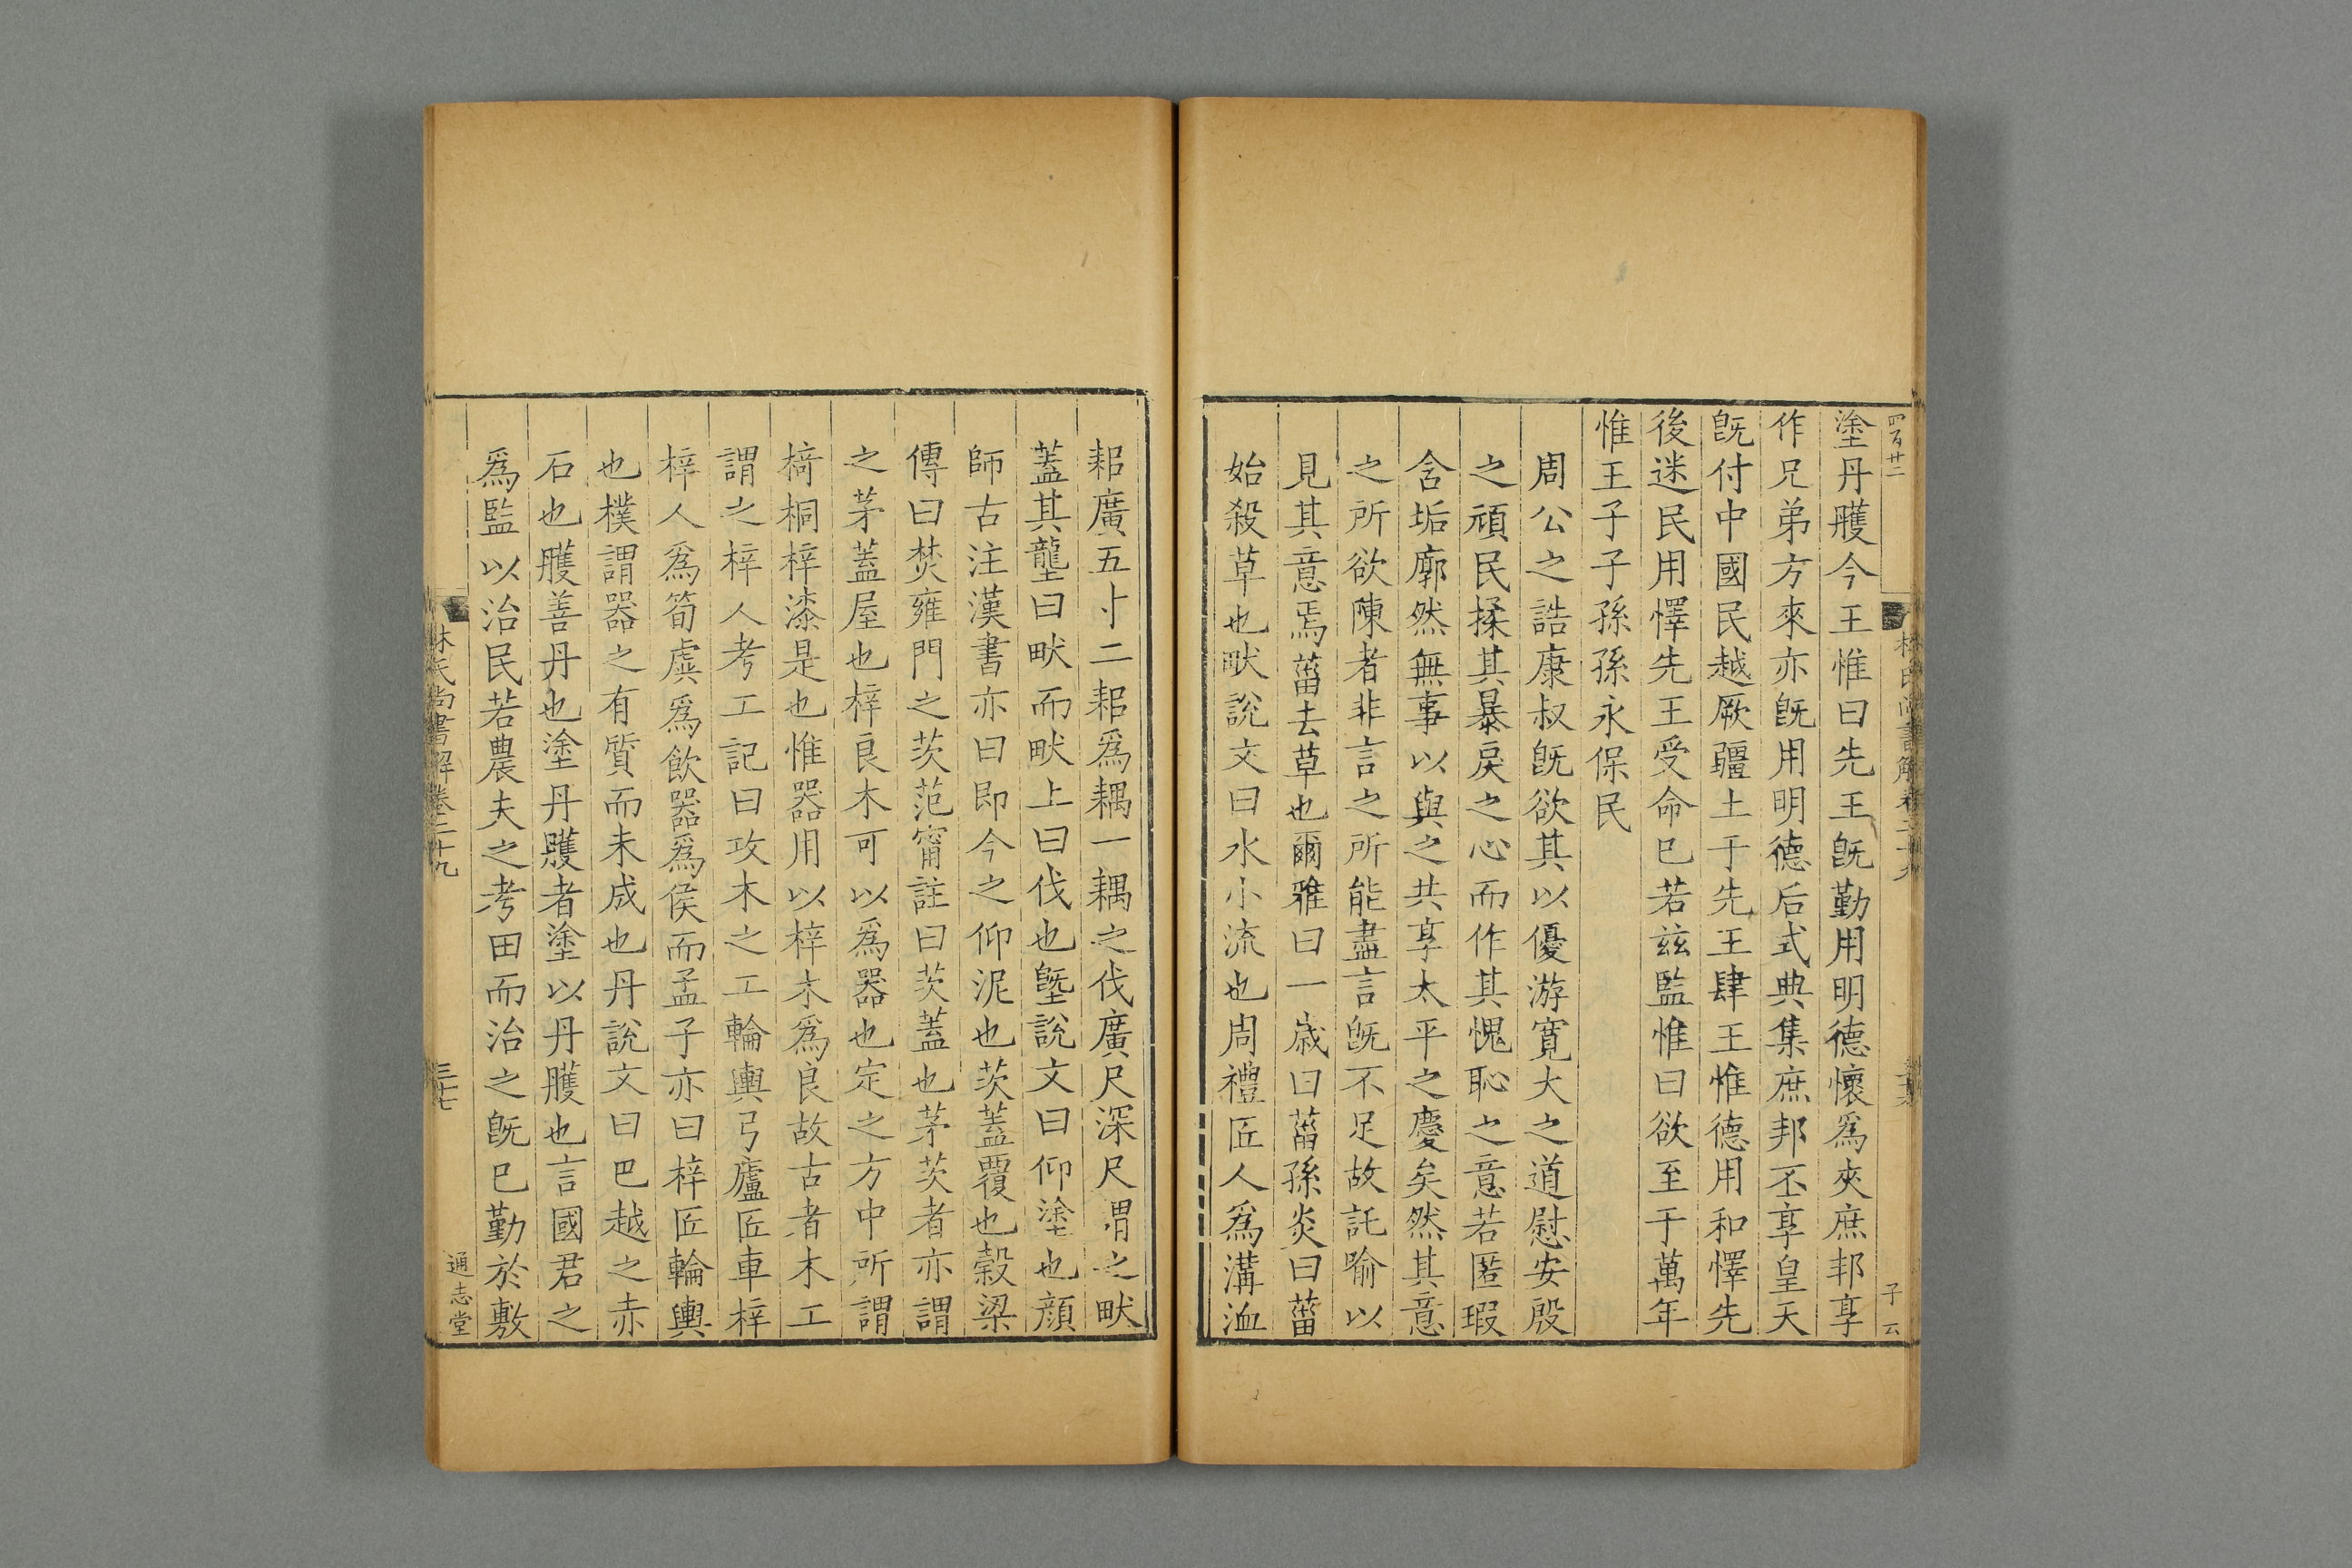 四百廿二
子云
塗丹雘今王惟曰先王旣勤用明德懷爲夾庶邦享
作兄弟方來亦旣用明德后式典集庶邦丕享皇天
旣付中國民越厥疆土于先王肆王惟德用和懌先
後迷民用懌先王受命巳若兹監惟曰欲至于萬年
惟王子子孫孫永保民
周公之誥康叔旣欲其以優游寛大之道慰安殷
之頑民揉其暴戾之心而作其愧恥之意若匿瑕
含垢廓然無事以與之共享太平之慶矣然其意
之所欲陳者非言之所能盡言旣不足故託喻以
見其意焉菑去草也爾雅曰一歳曰菑孫炎曰菑
始殺草也畎說文曰水小流也周禮匠人爲溝洫
耜廣五寸二耜爲耦一耦之伐廣尺深尺謂之畎
蓋其壟曰畎而畎上曰伐也墍說文曰仰塗也顔
師古注漢書亦曰即今之仰泥也茨蓋覆也榖梁
傳曰焚雍門之茨范甯註曰茨蓋也茅茨者亦謂
之茅蓋屋也梓良木可以爲器也定之方中所謂
椅桐梓漆是也惟器用以梓木爲良故古者木工
謂之梓人考工記曰攻木之工輪輿弓廬匠車梓
梓人爲筍虡爲飲器爲侯而孟子亦曰梓匠輪輿
也樸謂器之有質而未成也丹說文曰巴越之赤
石也雘善丹也塗丹雘者塗以丹雘也言國君之
爲監以治民若農夫之考田而治之旣巳勤於敷
林氏尚書解卷二十九
三十七
通志堂